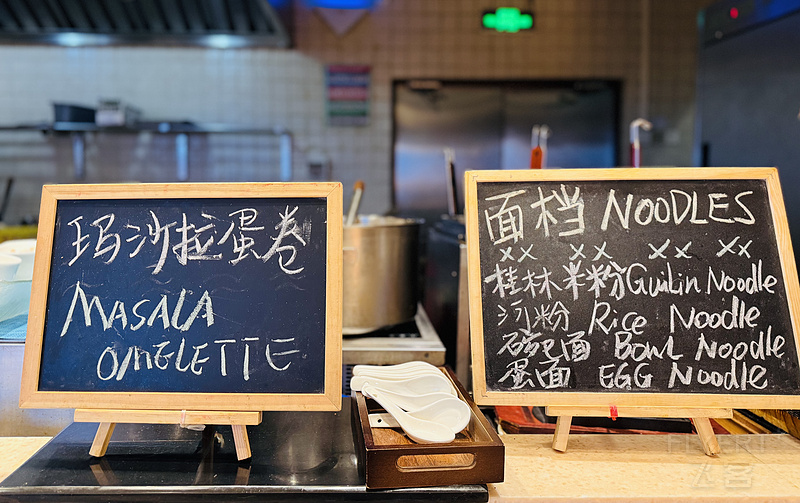 玛沙拉蛋卷
MASALA
OMELETTE
面档 NOODLES
×× ×× ×× ××
桂林米粉 Guilin Noodle
河粉 Rice Noodle
碗面 Bowl Noodle
蛋面 EGG Noodle